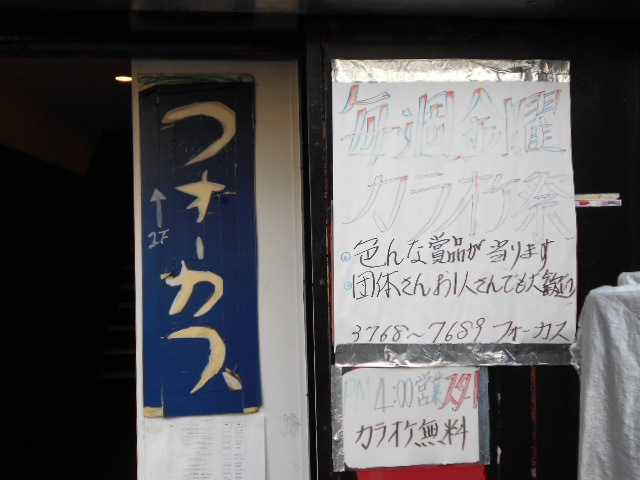 フォーカス
↑
2F
毎週金曜
カラオケ祭
色んな賞品が当ります
団体さんお1人さんでも大歓迎
3768~7689 フォーカス
PM4:00営業スタート
カラオケ無料